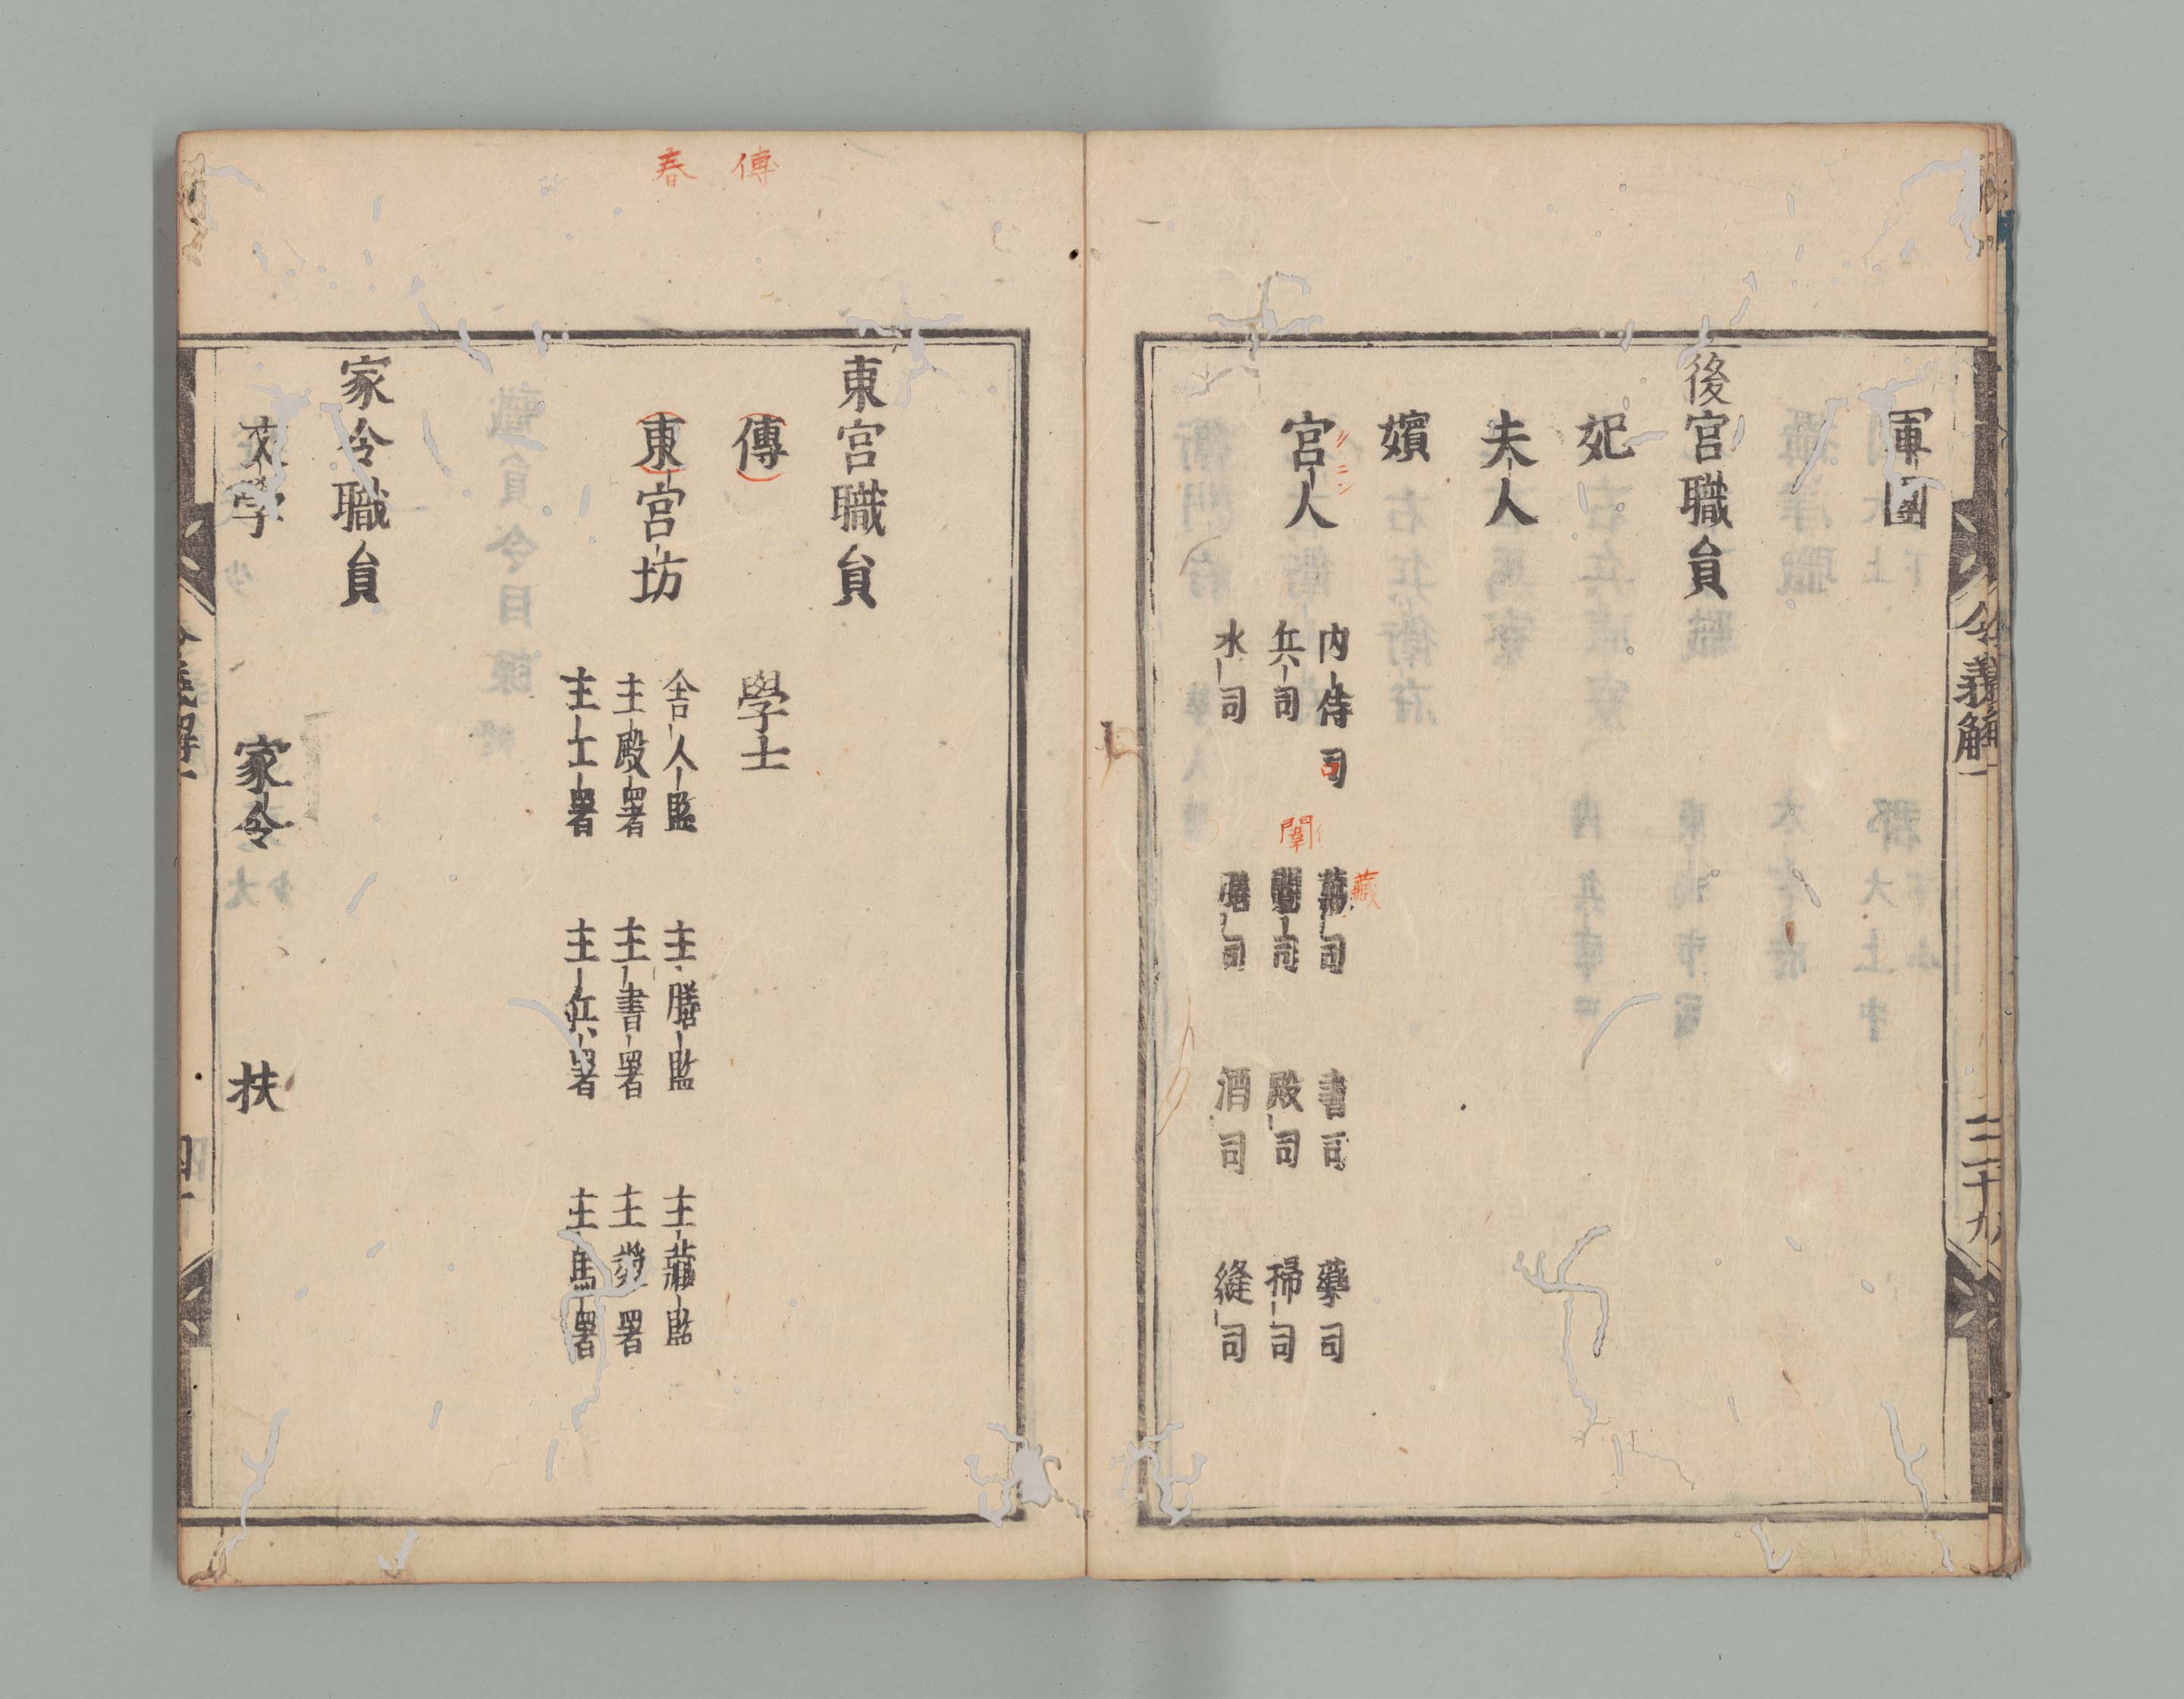 軍團
後宮職員
妃
夫人
嬪
宮人
ノニン
内侍司 藏司 書司 藥司
藏
兵司 闈司 殿司 掃司
闈
水司 膳司 酒司 縫司
令義解一
三十九
東宮職員
傅
傅 學士
春
東宮坊
舎人監 主膳監 主藏監
主殿署 主書署 主漿署
主工署 主兵署 主馬署
家令職員
文學 家令 扶
令義解一
四十